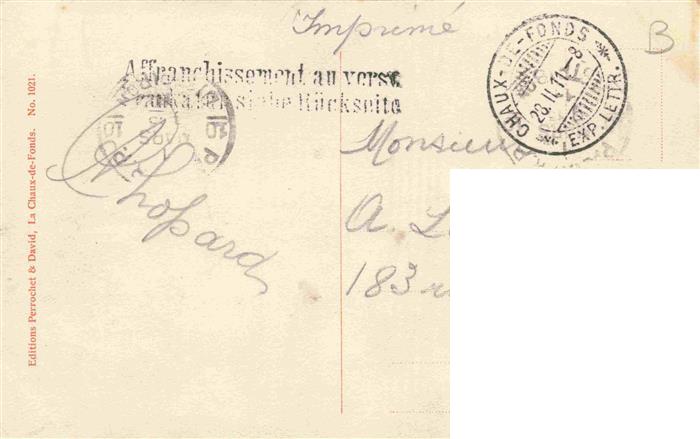 Imprimé
B
Affranchissement au verso
Frankatur siehe Rückseite
CHAUX-DE-FONDS
28.II.11.-8
EXP. LETTR.
Monsieur
A.
183
Chopard
Editions Perrochet & David, La Chaux-de-Fonds. No. 1021.